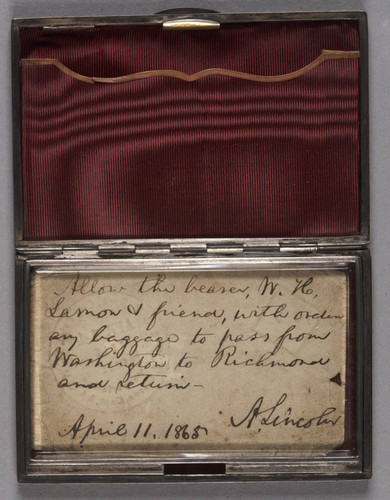 Allow the bearer, W. H.
Lamon & friend, with ordin
ary baggage to pass from
Washington to Richmond
and return—
April 11, 1865 A. Lincoln